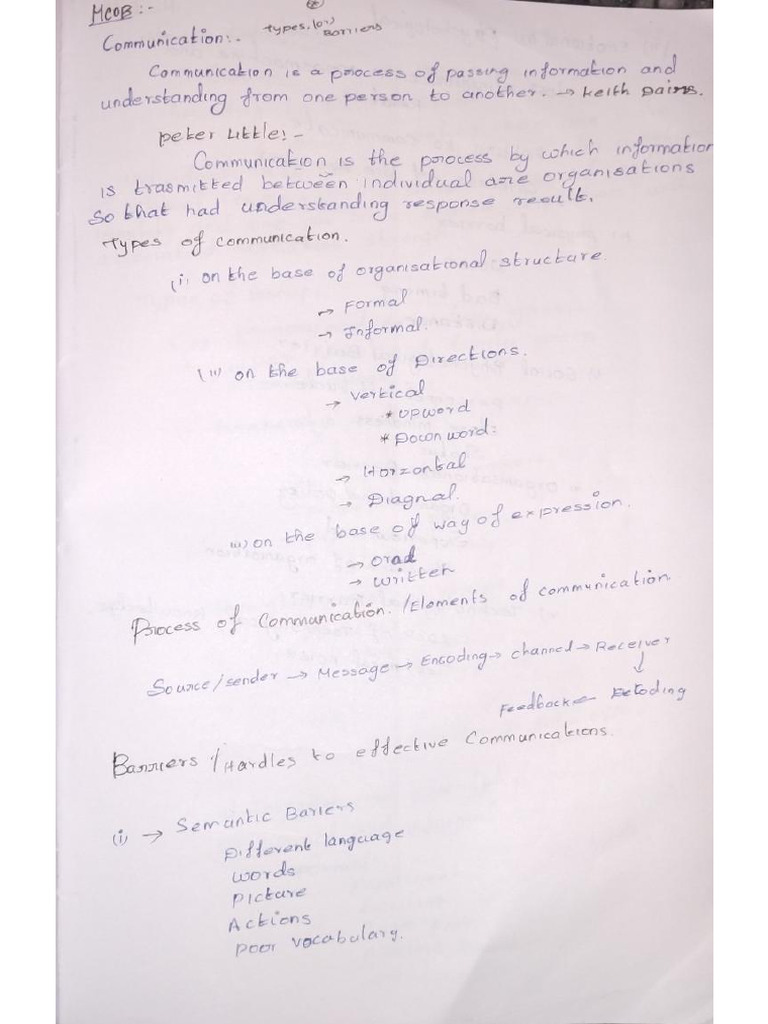 MCOB:-
Communication:- Types, (or) Barriers
Communication is a process of passing information and
understanding from one person to another. → Keith Daims.
Peter Little:-
Communication is the process by which information
is trasmitted between individual are organisations
So that had understanding response result.
Types of communication.
(i) on the base of organisational structure.
→ Formal
→ Informal.
(ii) on the base of Directions.
→ Vertical
* upword
* Down word:
→ Horzontal
→ Diagnal.
(iii) on the base of way of expression.
→ oral
→ written
Process of communication. / Eloments of communication.
Source/sender → Message → Encoding → channel → Receiver
↓
Feedback ← Decoding
Barriers / Hardles to effective Communications.
(i) → Semantic Bariers
Different language
words
Picture
Actions
Poor vocabulary.